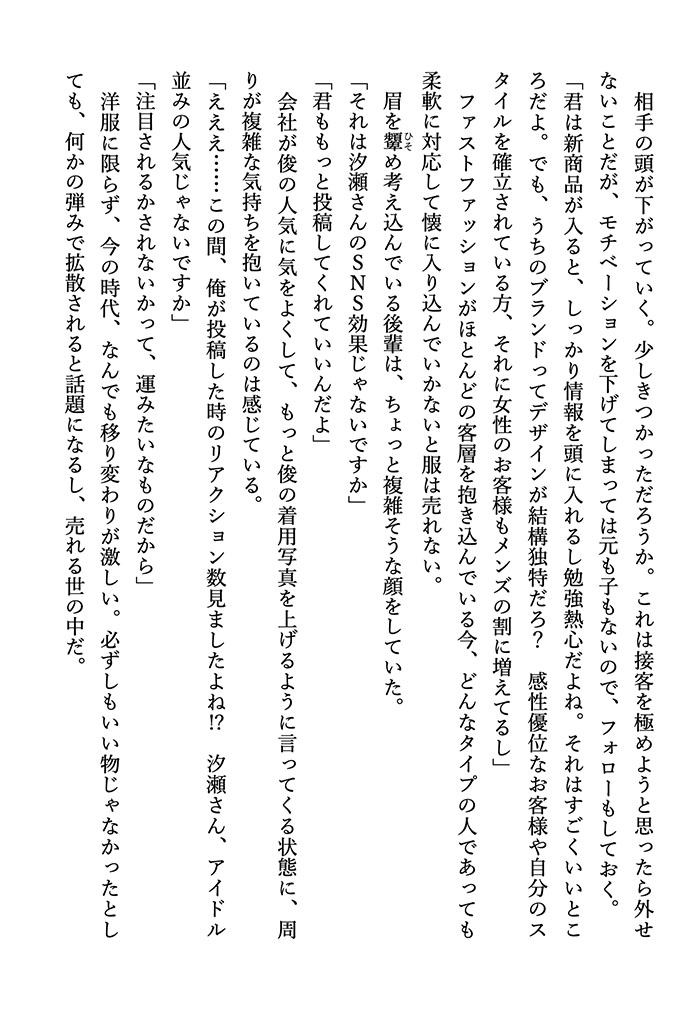 相手の頭が下がっていく。少しきつかっただろうか。これは接客を極めようと思ったら外せ
ないことだが、モチベーションを下げてしまっては元も子もないので、フォローもしておく。
「君は新商品が入ると、しっかり情報を頭に入れるし勉強熱心だよね。それはすごくいいとこ
ろだよ。でも、うちのブランドってデザインが結構独特だろ？　感性優位なお客様や自分のス
タイルを確立されている方、それに女性のお客様もメンズの割に増えてるし」
ファストファッションがほとんどの客層を抱き込んでいる今、どんなタイプの人であっても
柔軟に対応して懐に入り込んでいかないと服は売れない。
眉を顰ひそめ考え込んでいる後輩は、ちょっと複雑そうな顔をしていた。
「それは汐瀬さんのＳＮＳ効果じゃないですか」
「君ももっと投稿してくれていいんだよ」
会社が俊の人気に気をよくして、もっと俊の着用写真を上げるように言ってくる状態に、周
りが複雑な気持ちを抱いているのは感じている。
「えええ……この間、俺が投稿した時のリアクション数見ましたよね!?　汐瀬さん、アイドル
並みの人気じゃないですか」
「注目されるかされないかって、運みたいなものだから」
洋服に限らず、今の時代、なんでも移り変わりが激しい。必ずしもいい物じゃなかったとし
ても、何かの弾みで拡散されると話題になるし、売れる世の中だ。